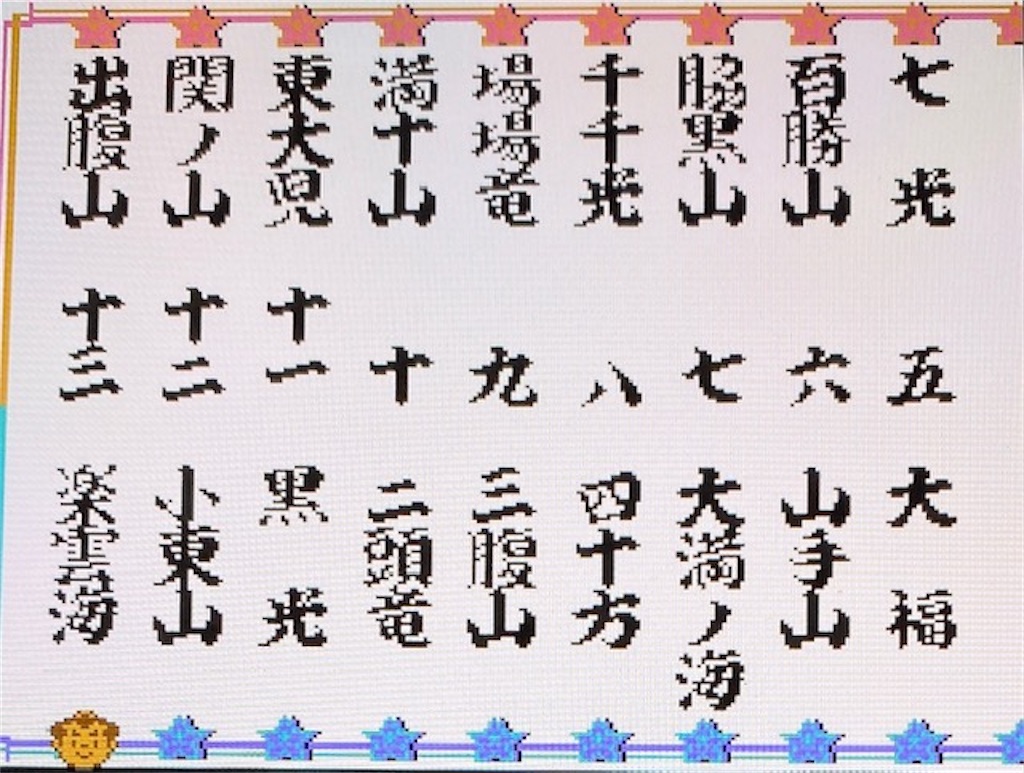 七光 五 大福
百勝山 六 山手山
脇黒山 七 大満ノ海
千千光 八 四十方
場場竜 九 三腹山
満十山 十 二頭竜
東大児 十一 黒光
関ノ山 十二 小東山
出腹山 十三 楽雲海